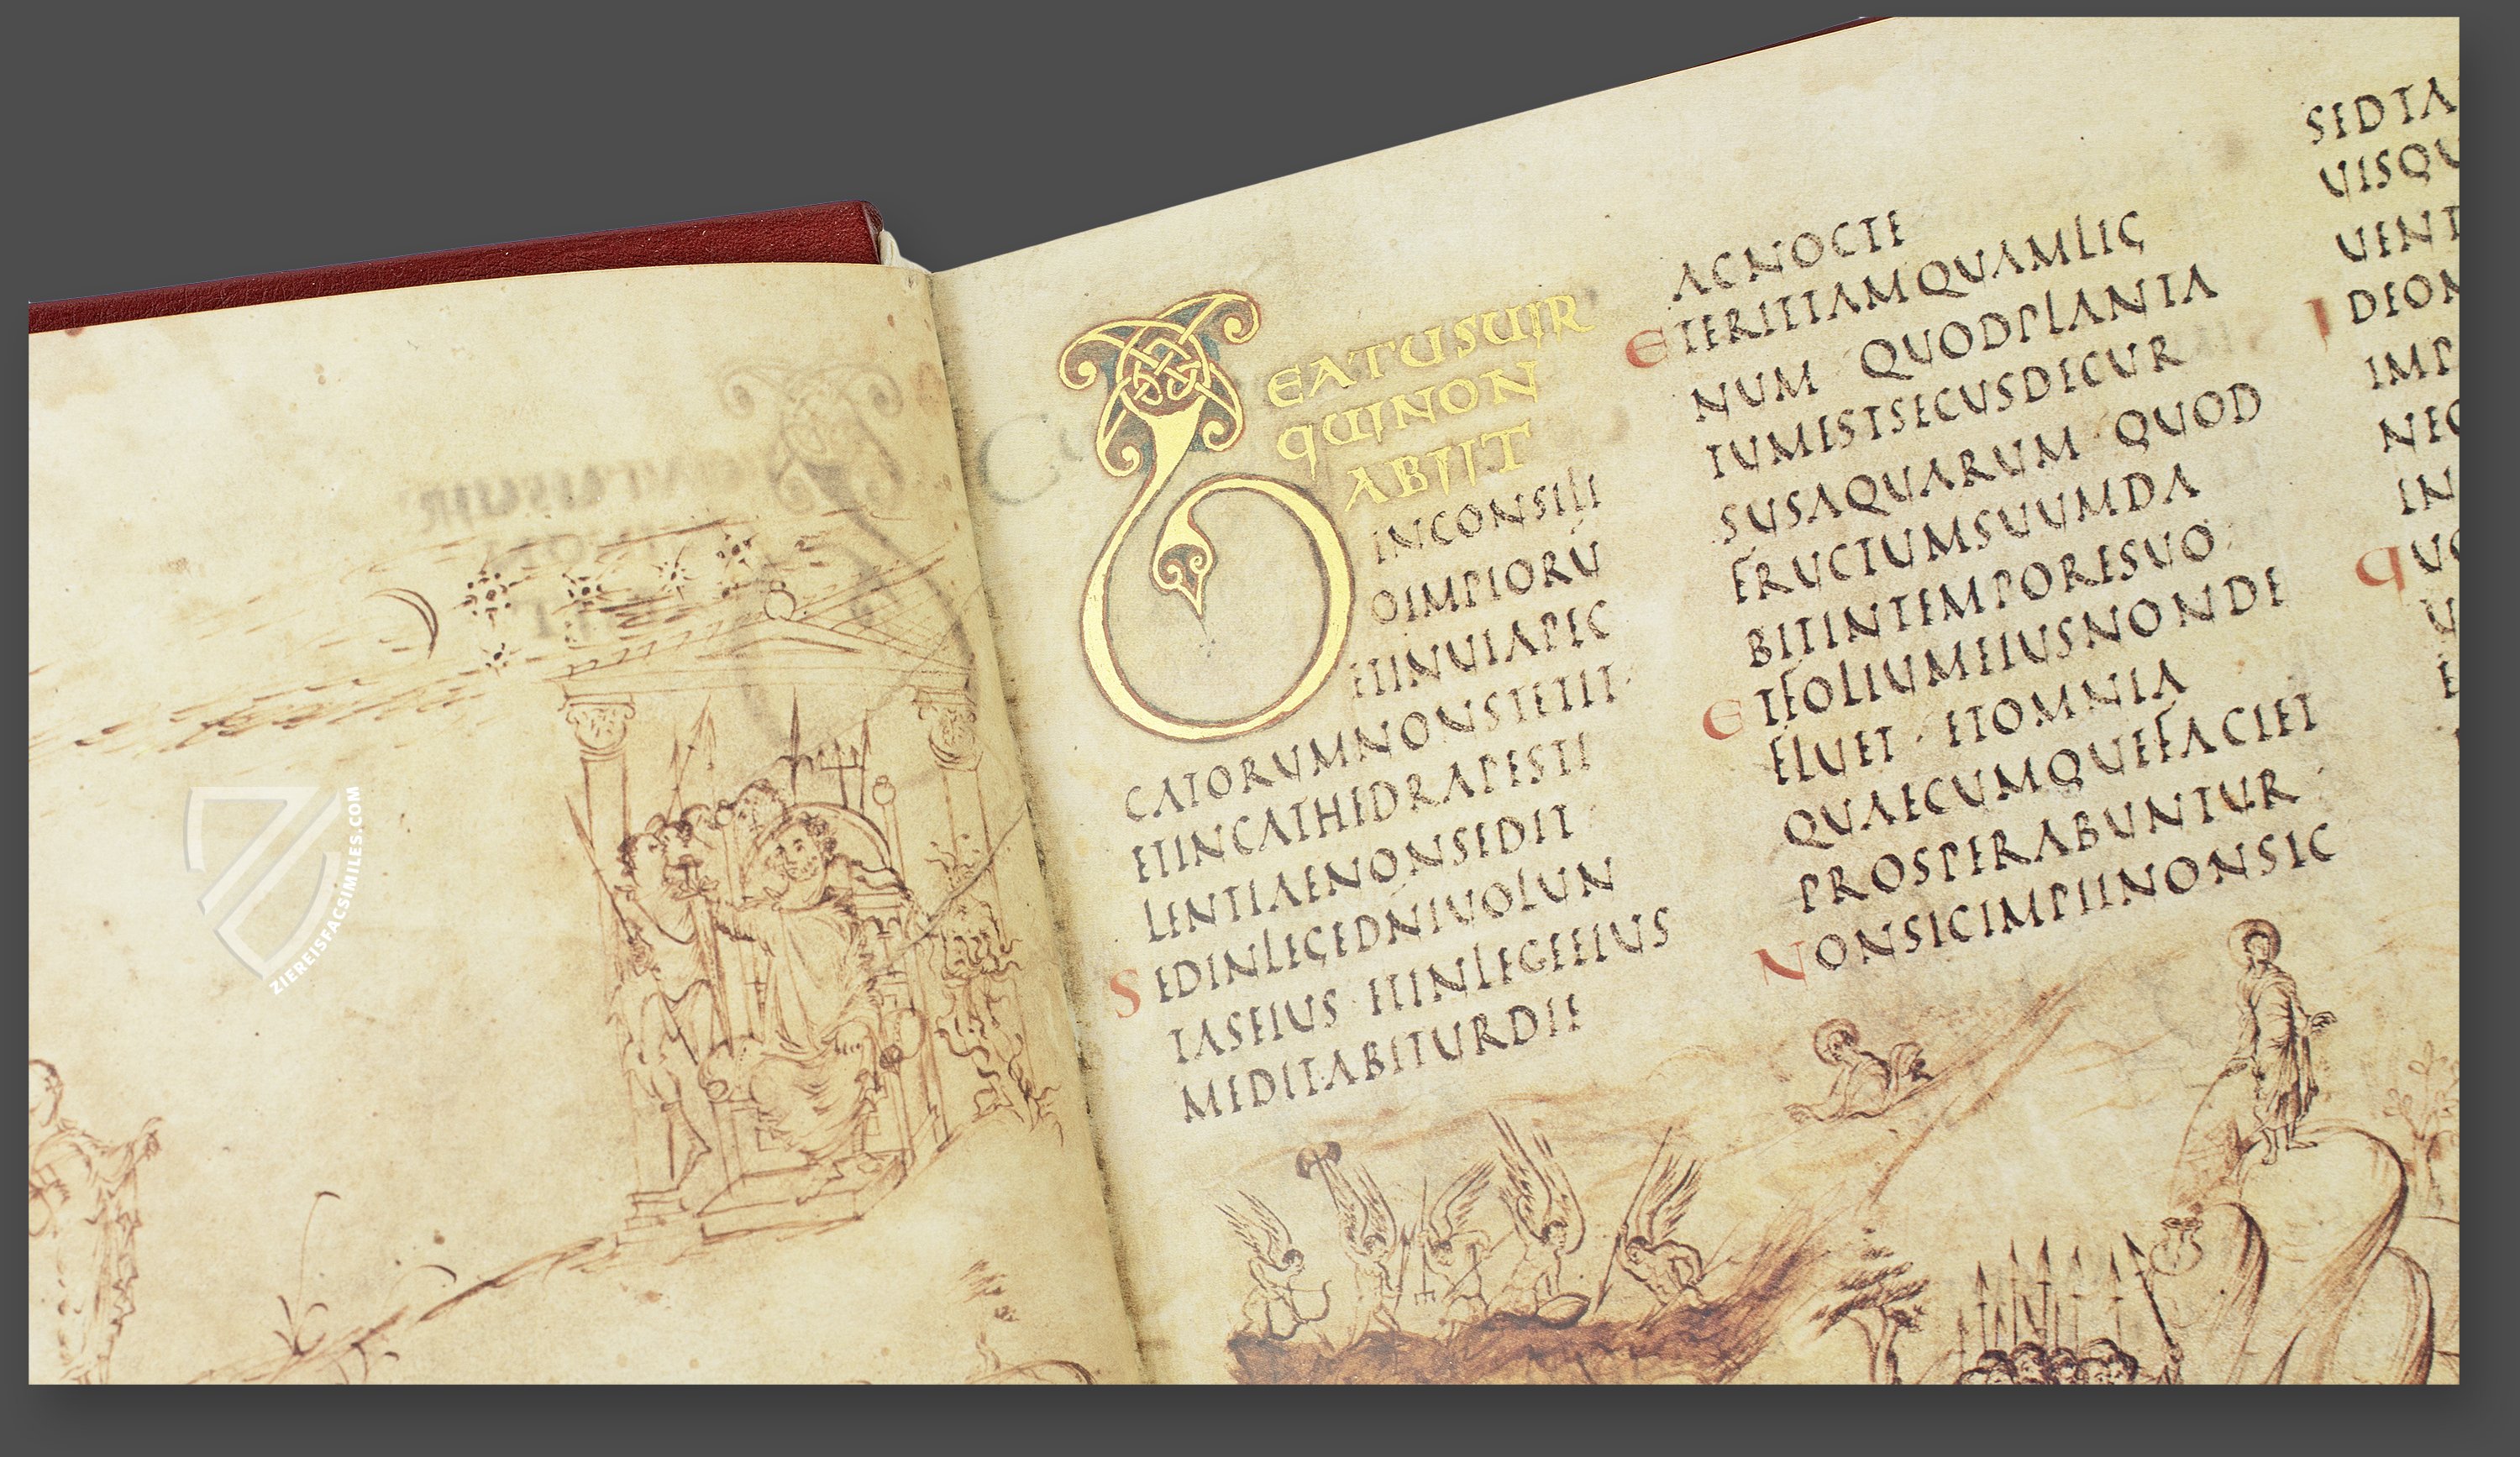 ZIEREISFACSIMILES.COM
BEATUSUIR
QUINON
ABIIT
INCONSILI
OIMPIORŪ
ETINUIAPEC
CATORUMNONSTETIT
ETINCATHEDRAPESTI
LENTIAENONSEDIT
SEDINLEGEDNIUOLUN
TASEIUS ETINLEGEEIUS
MEDITABITURDIE
ACNOCTE
ETERITTAMQUAMLIG
NUM QUODPLANTA
TUMESTSECUSDECUR
SUSAQUARUM QUOD
FRUCTUMSUUMDA
BITINTEMPORESUO
ETFOLIUMEIUSNONDE
FLUET ETOMNIA
QUAECUMQUEFACIET
PROSPERABUNTUR
NONSICIMPIINONSIC
SEDTA
UISQU
UENT
IDEON
IMP
NEC
IN
QUO